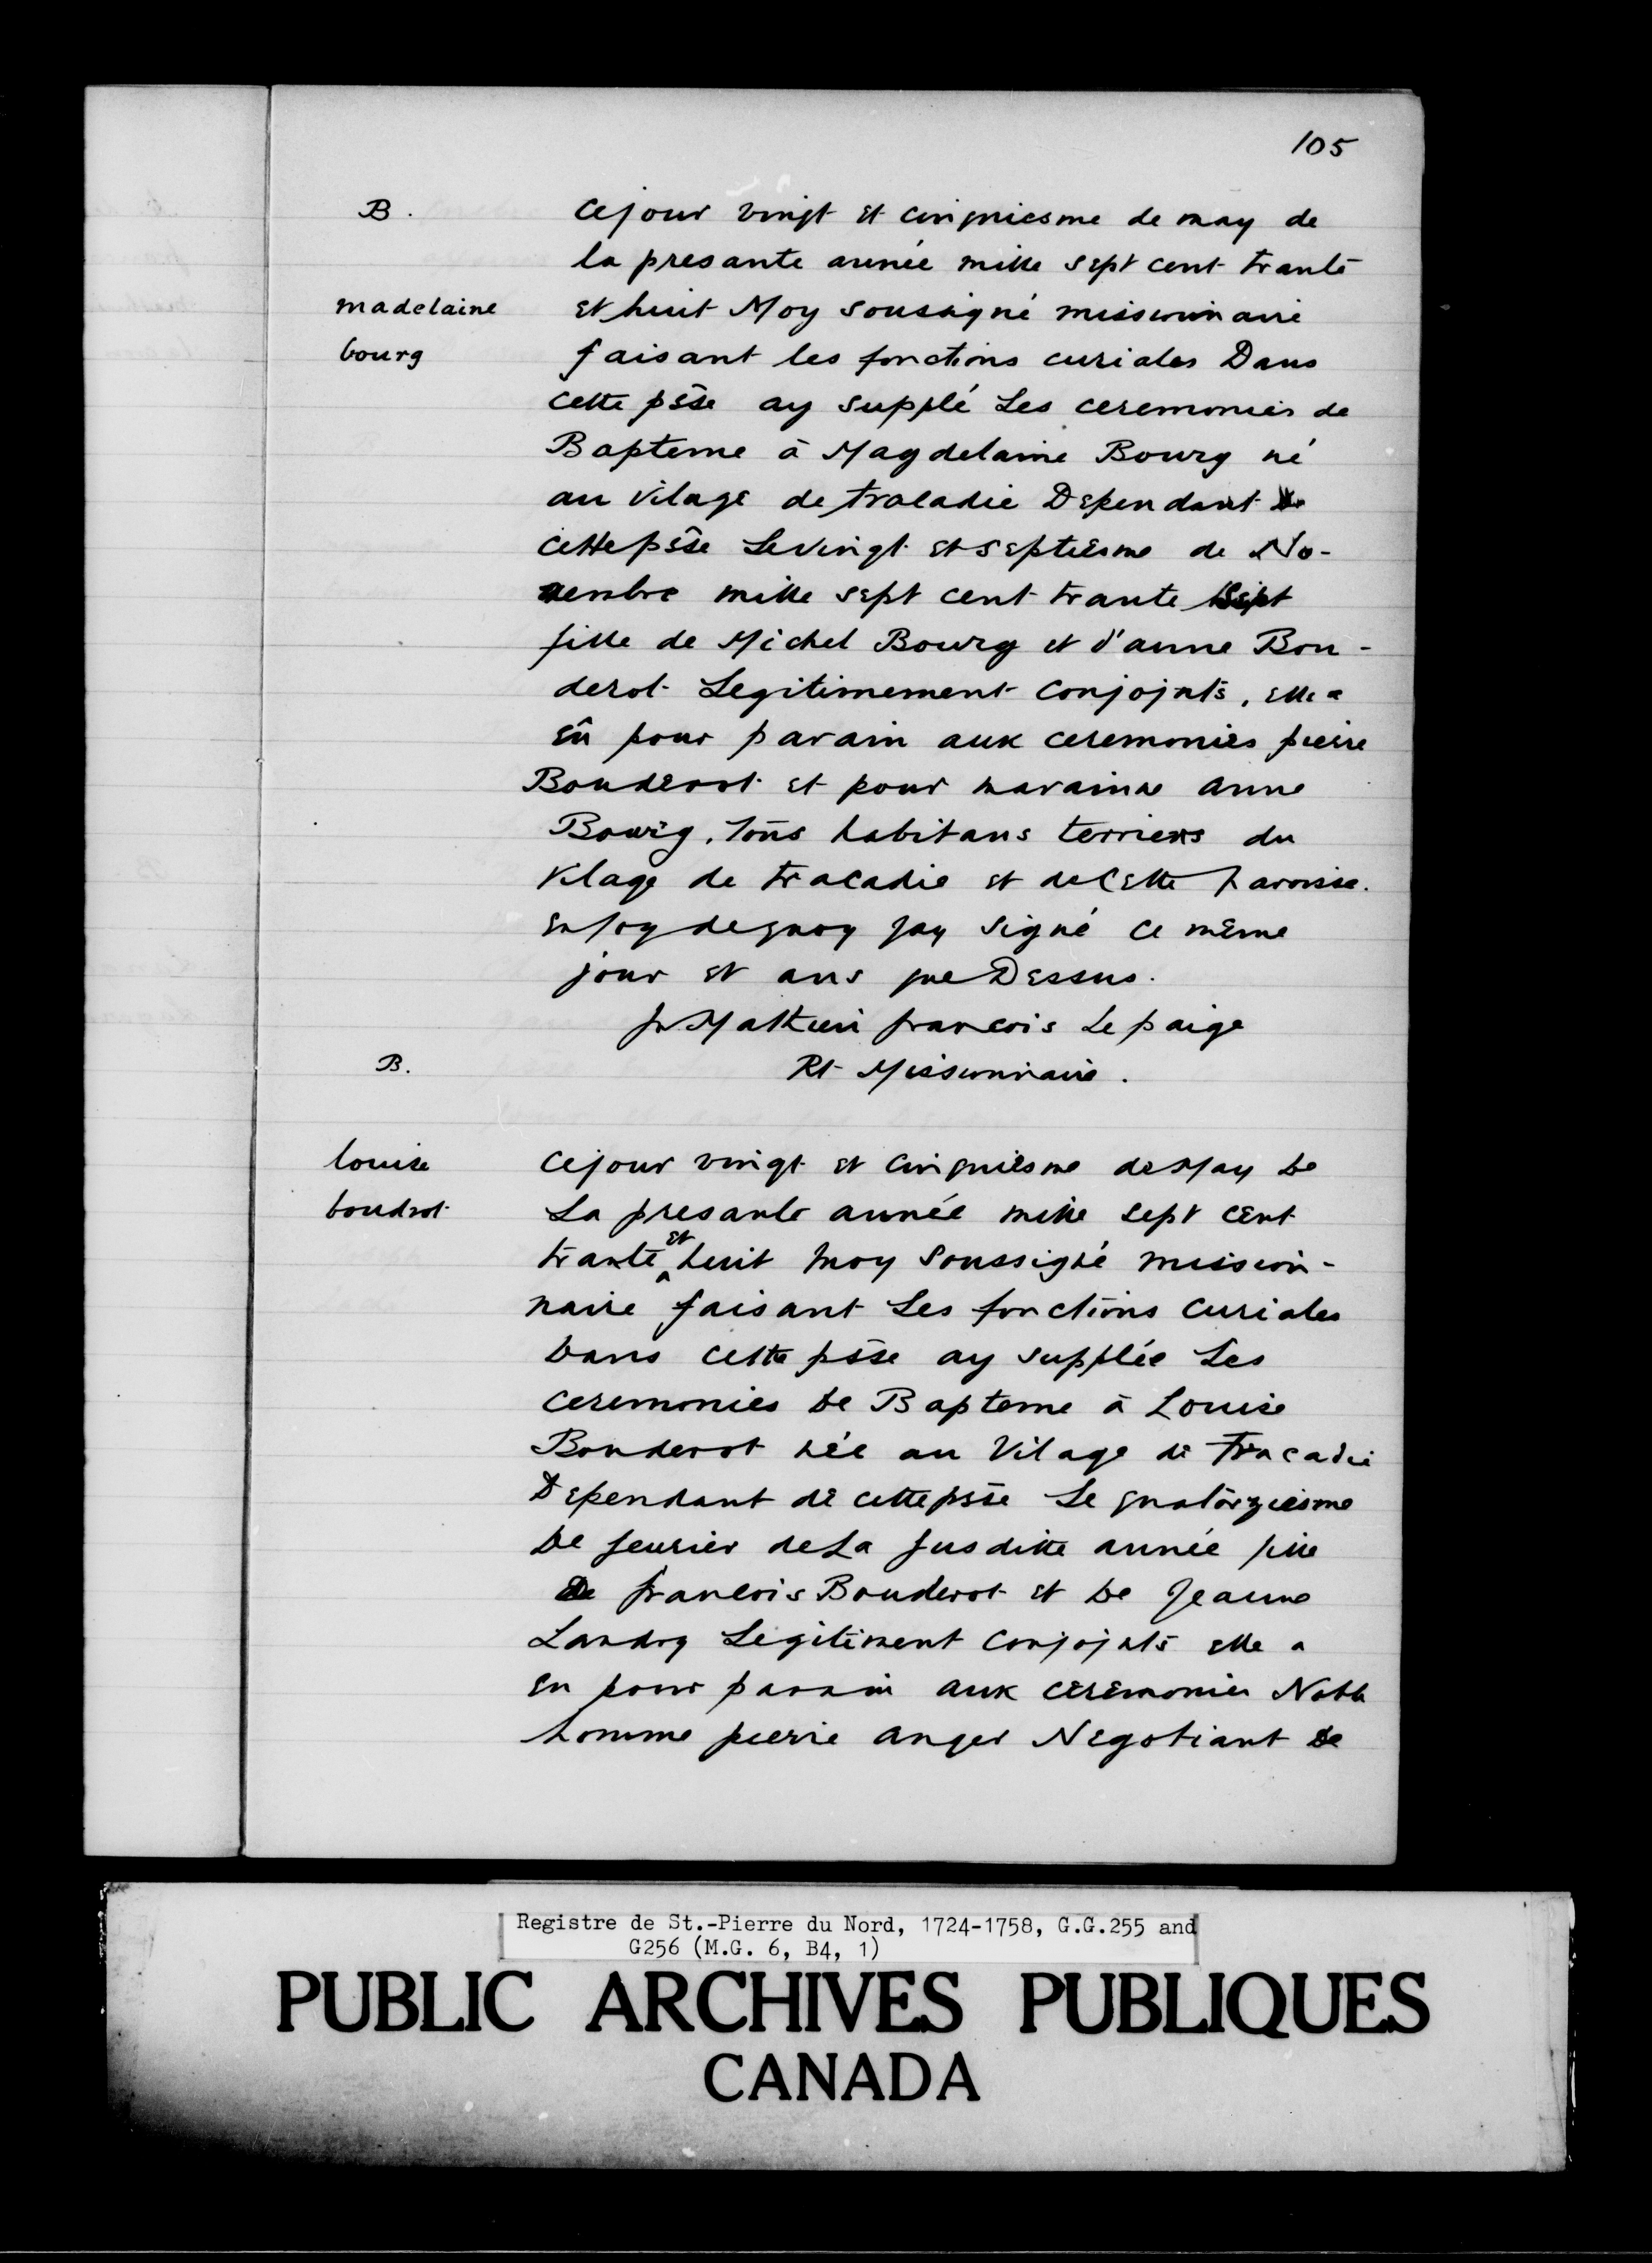 105
B.
cejour vingt et cinquiesme de may de
la presante année mille sept cent trante
madelaine
et huit Moy soussigné missionnaire
bourg
faisant les fonctions curiales Dans
cette psse ay supplé Les ceremonies de
Bapteme à Magdelaine Bourg né
au vilage de tracadie Dependant de
cette psse Le vingt et septiesme de No-
vembre mille sept cent trante sept
fille de Michel Bourg et d'anne Bou-
derot Legitimement conjojnts, elle a
eû pour parain aux ceremonies pierre
Bouderot et pour maraine anne
Bourg, Tous habitans terriens du
vilage de tracadie et de cette Paroisse.
en foy de quoy jay signé ce même
jour et ans que Dessus.
fr Mathieu francois Le paige
B.
Rt Missionnaire.
louise
cejour vingt et cinquiesme de May De
boudrot
La presante année mille sept cent
trante et huit moy soussigné mission-
naire faisant Les fonctions curiales
Dans cette psse ay supplée Les
ceremonies De Bapteme à Louise
Bouderot née au Vilage de Tracadie
Dependant de cette psse Le quatorziesme
De feurier de La susditte année fille
De francois Bouderot et De Jeanne
Landry Legitiment conjojnts elle a
eu pour parain aux ceremonies Noble
homme pierre anger Negotiant De
Registre de St.-Pierre du Nord, 1724-1758, G.G.255 and
G256 (M.G. 6, B4, 1)
PUBLIC ARCHIVES PUBLIQUES
CANADA